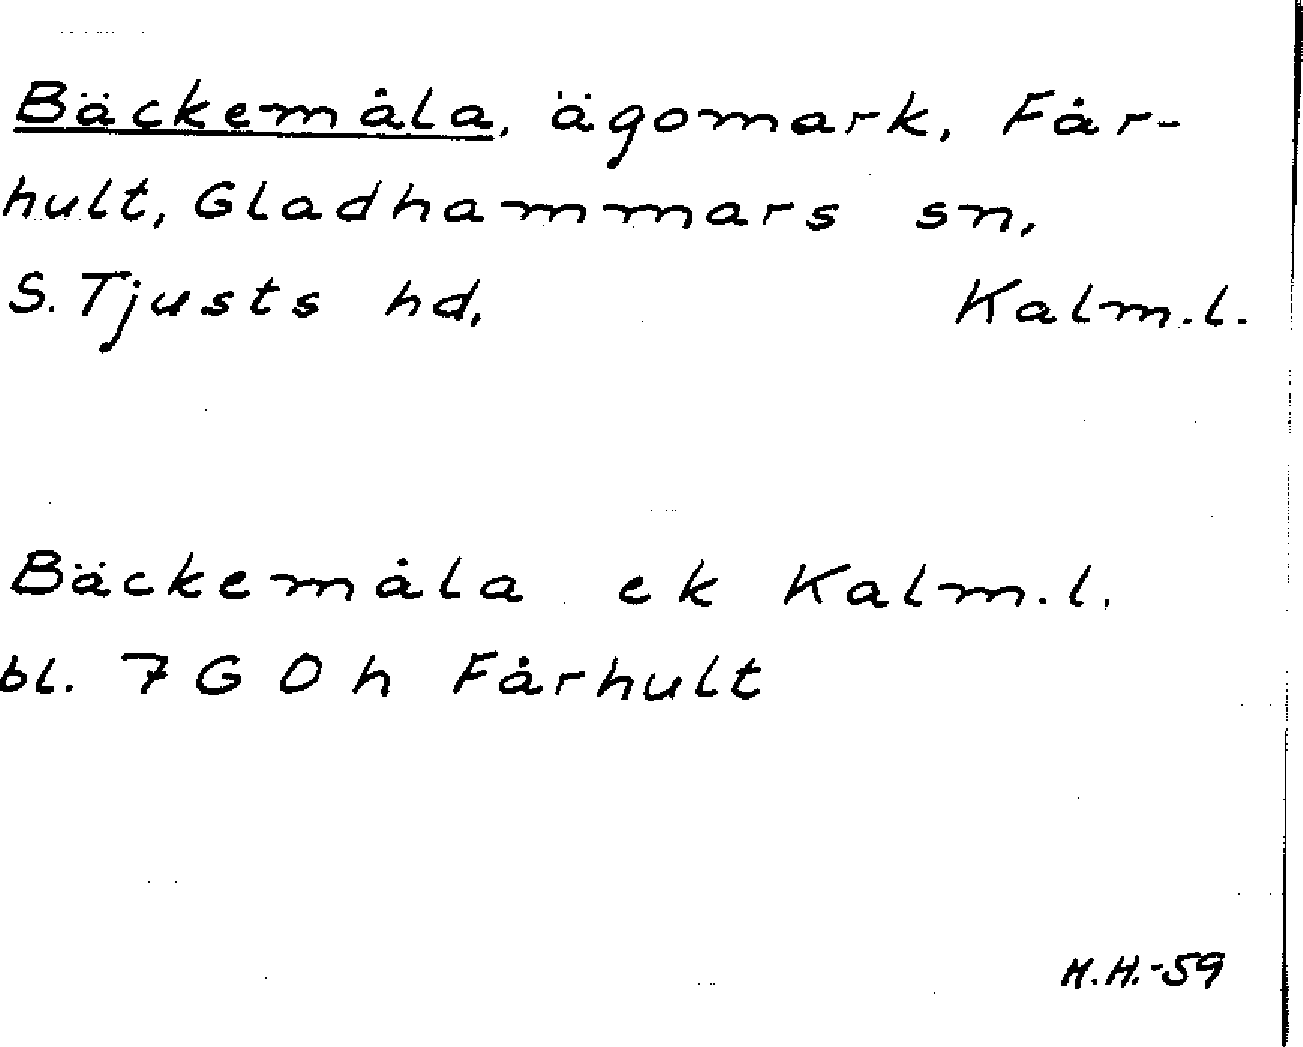 Bäckemåla, ägomark, Får-
hult, Gladhammars sn,
S. Tjusts hd, Kalm.l.
Bäckemåla ek Kalm.l.
bl. 7 G 0 h Fårhult
M.H.-59